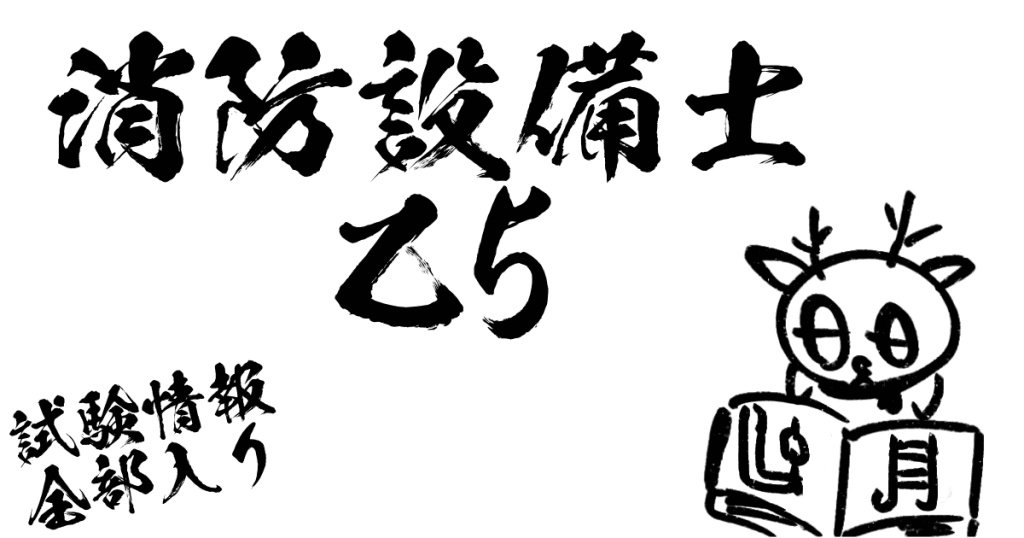 消防設備士
乙5
試験情報
全部入り
月